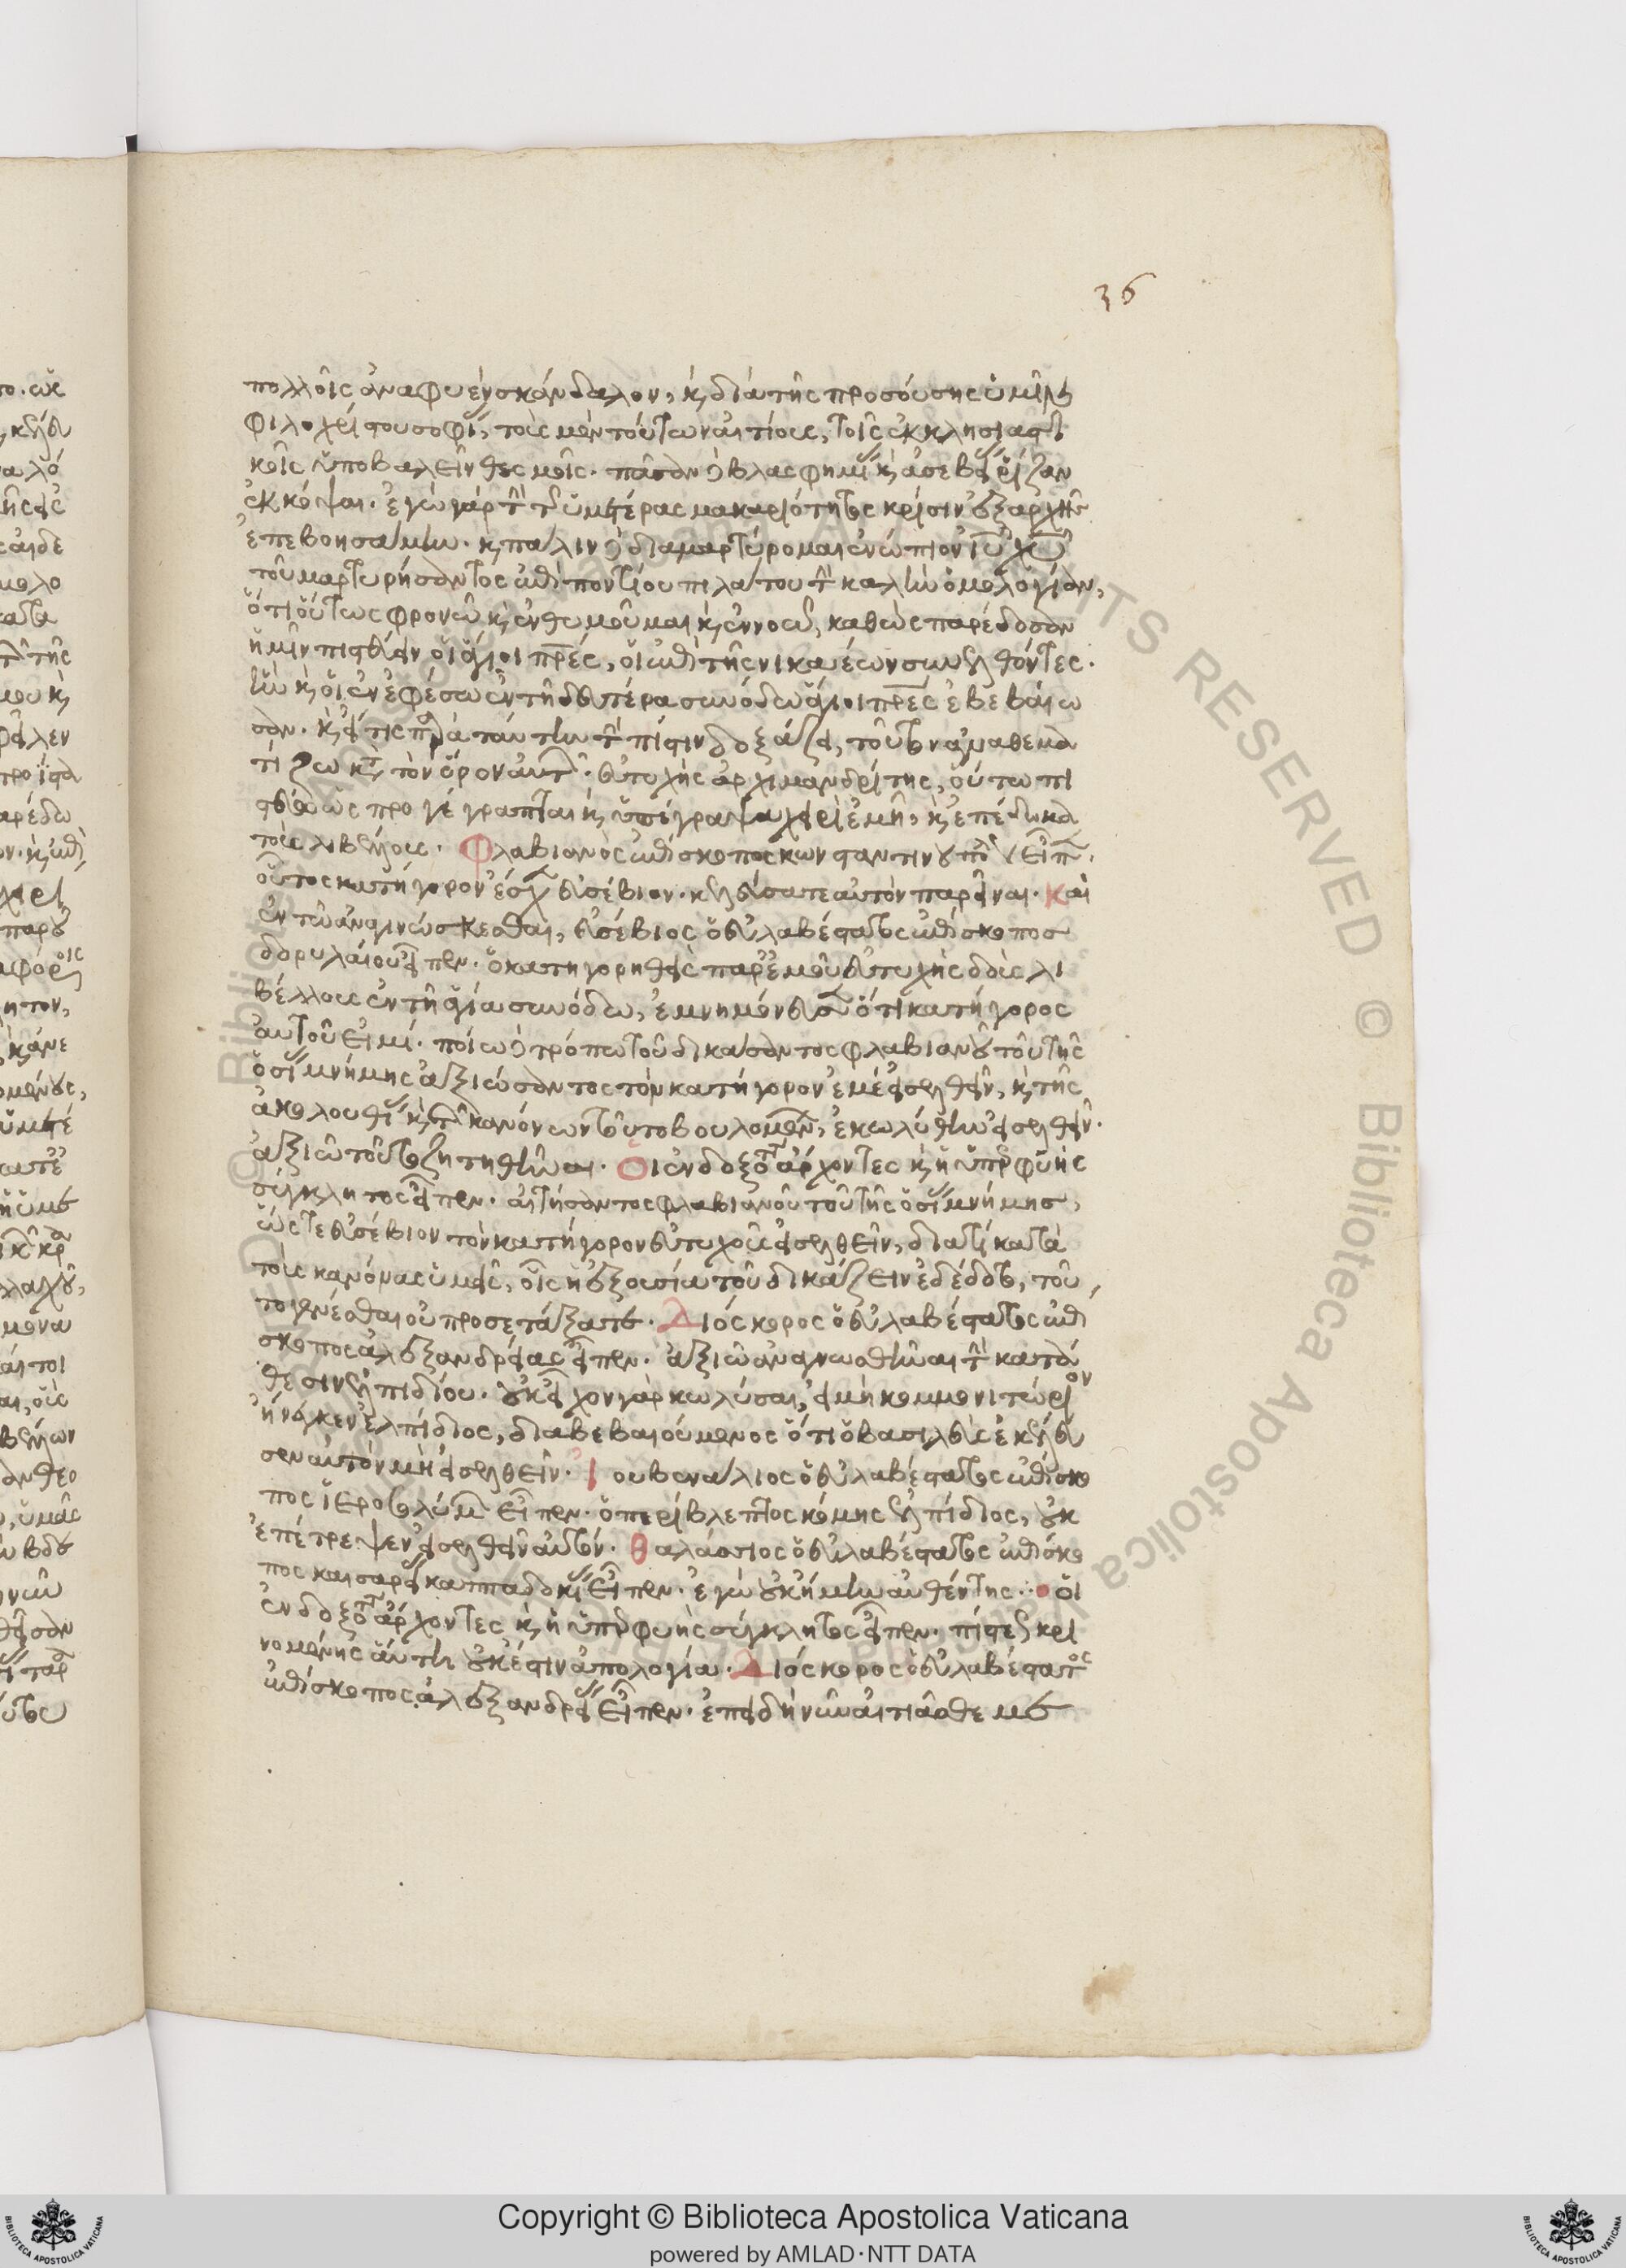 36
πολλοῖς ἀναφυὲν σκάνδαλον, κ διὰ τῆς προσούσης ὑμῖν
φιλοχρίστου σοφί, τοὺς μὲν τούτων αἰτίους, τοῖς ἐκκλησιαστι
κοῖς ὑποβαλεῖν θεσμοῖς. πᾶσαν δὲ βλασφημί κ ἀσεβεί ῥίζαν
ἐκκόψαι. ἐγὼ γὰρ τὴν τῆς ὑμετέρας μακαριότητος κρίσιν ἐξαρχῆς
ἐπεβοησάμην. κ πάλιν δὲ διαμαρτύρομαι ἐνώπιον ιυ χυ
τοῦ μαρτυρήσαντος ἐπὶ ποντίου πιλάτου τὴν καλὴν ὁμολογίαν,
ὅτι οὕτως φρονῶ κ ἐνθυμοῦμαι κ ἐννοῶ, καθὼς παρέδοσαν
ἡμῖν πιστεύειν οἱ ἅγιοι πρες, οἱ ἐπὶ τῆς νικαέων συνελθόντες.
ἣν κ οἱ ἐν ἐφέσω ἐν τῆ δευτέρα συνόδω ἅγιοι πρες ἐβεβαίω
σαν. κ εἴ τις παρὰ ταύτην τὴν πίστιν δοξάζει, τοῦτον ἀναθεμα
τίζω κτ τὸν ὅρον αὐτ. εὐτυχὴς ἀρχιμανδρίτης, οὕτω πι
στεύω ὡς προγέγραπται κ ὑπέγραψα χειρὶ ἐμῆ, κ ἐπέδωκα
τοὺς λιβέλλους. Φλαβιανὸς ἐπίσκοπος κωνσταντινουπόλ εἶπ.
οὗτος κατήγορον ἔσχ εὐσέβιον. κελεύσατε αὐτὸν παρεῖναι. Καὶ
ἐν τῶ ἀναγινώσκεσθαι, εὐσέβιος ὁ εὐλαβέστατος ἐπίσκοπος
δορυλαίου εἶπεν. ὁ κατηγορηθεὶς παρ ἐμοῦ εὐτυχὴς δοὺς λι
βέλλους ἐν τῆ ἁγία συνόδω, ἐμνημόνευσ ὅτι κατήγορος
αὐτοῦ εἰμί. ποίω δὲ τρόπω τοῦ δικάσαντος φλαβιανοῦ τοῦ τῆς
ὁσί μνήμης ἀξιώσαντος τὸν κατήγορον ἐμὲ εἰσελθεῖν, κ τῆς
ἀκολουθί κ τῶν κανόνων τοῦτο βουλομέν, ἐκωλύθην εἰσελθεῖν.
ἀξιῶ τοῦτο ζητηθῆναι. Οἱ ἐνδοξότ ἄρχοντες κ ἡ ὑπερφυὴς
σύγκλητος εἶπεν. αἰτήσαντος φλαβιανοῦ τοῦ τῆς ὁσί μνήμης,
ὥστε εὐσέβιον τὸν κατήγορον εὐτυχοῦς εἰσελθεῖν, διατί κατὰ
τοὺς κανόνας ὑμεῖς, οἷς ἡ ἐξουσία τοῦ δικάζειν ἐδέδοτο, τοῦ
το γενέσθαι οὐ προσετάξατε. Διόσκορος ὁ εὐλαβέστατος ἐπί
σκοπος ἀλεξανδρείας εἶπεν. ἀξιῶ ἀναγνωσθῆναι τὴν κατά
θεσιν ἐλπιδίου. οὐκ εἶχον γὰρ κωλύσαι, εἰ μὴ κομμονιτώριον
ἤνεγκεν ἐλπίδιος, διαβεβαιούμενος ὅτι ὁ βασιλεὺς ἐκέλευ
σεν αὐτὸν μὴ εἰσελθεῖν. Ἰουβενάλιος ὁ εὐλαβέστατος ἐπίσκο
πος ἱεροσολύμ εἶπεν. ὁ περίβλεπτος κόμης ἐλπίδιος, οὐκ
ἐπέτρεψεν εἰσελθεῖν αὐτόν. Θαλάσσιος ὁ εὐλαβέστατος ἐπίσκο
πος καισαρεί καππαδοκί εἶπεν. ἐγὼ οὐκ ἤμην αὐθέντης. οἱ
ἐνδοξότ ἄρχοντες κ ἡ ὑπερφυὴς σύγκλητος εἶπεν. πίστεως κρι
νομένης αὕτη οὐκ ἔστιν ἀπολογία. Διόσκορος ὁ εὐλαβέστατος
ἐπίσκοπος ἀλεξανδρεί εἶπεν. ἐπειδὴ νῦν αἰτιᾶσθε με